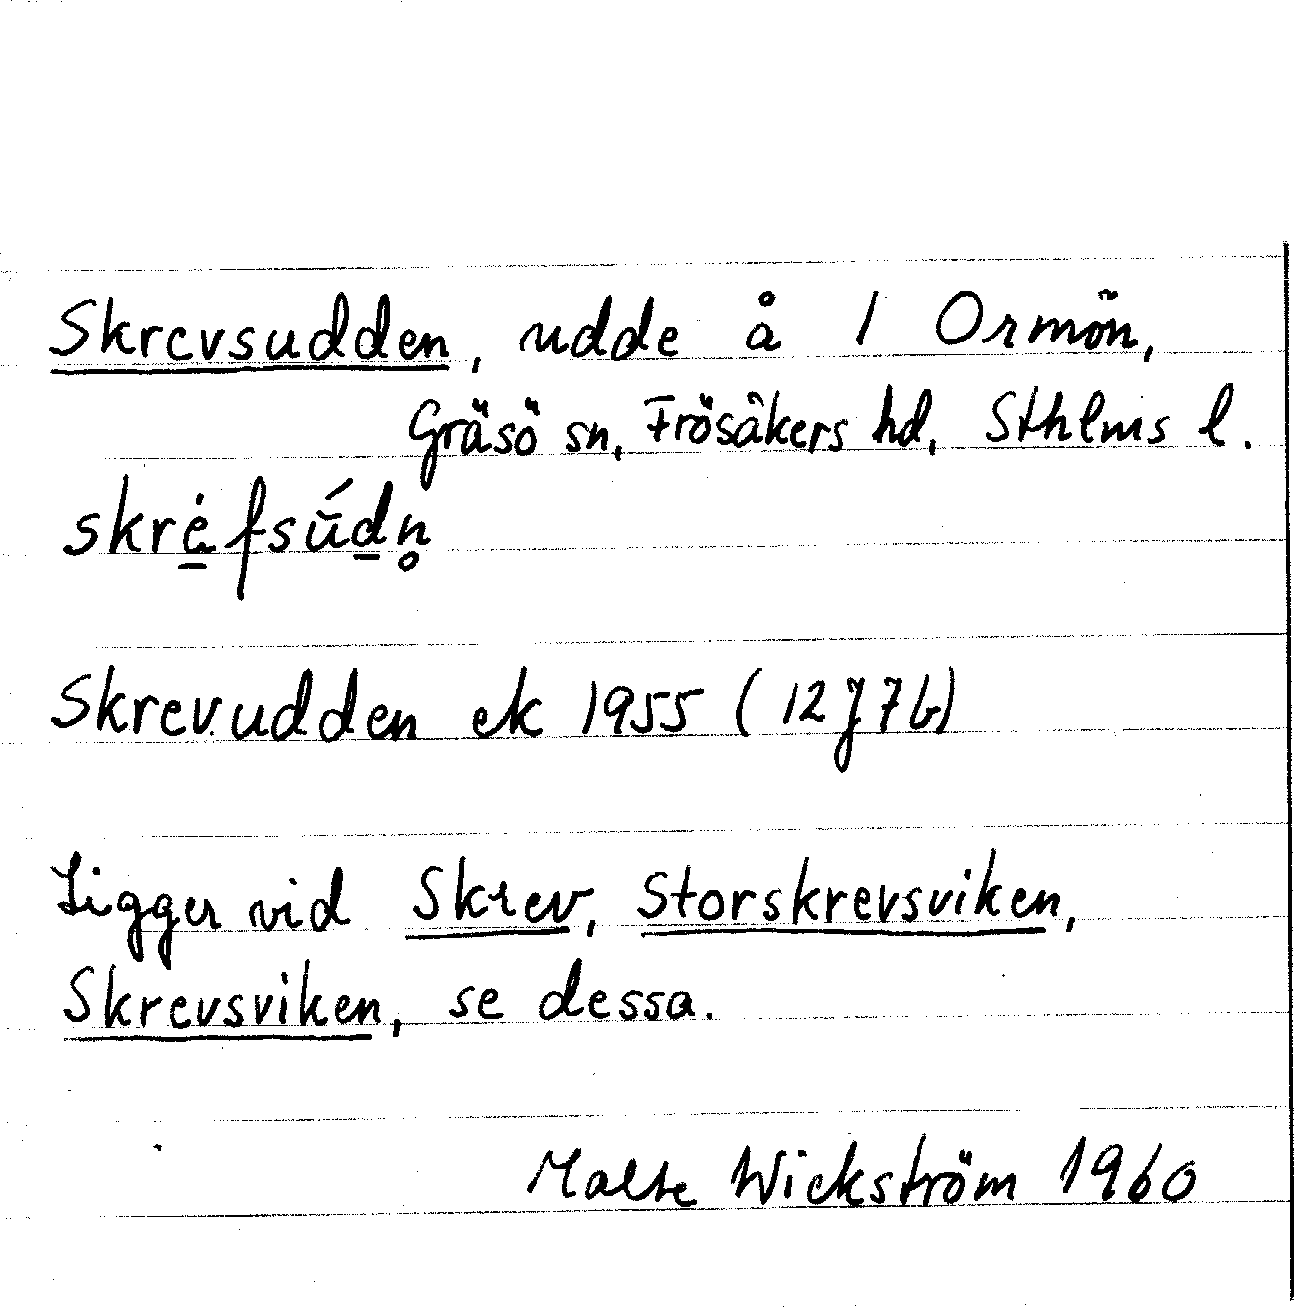 Skrevsudden, udde å 1 Ormön,
Gräsö sn, Frösåkers hd, Sthlms l.
skrėfsū́dn̥
Skrevudden ek 1955 (12J7b)
Ligger vid Skrev, Storskrevsviken,
Skrevsviken, se dessa.
Malte Wickström 1960